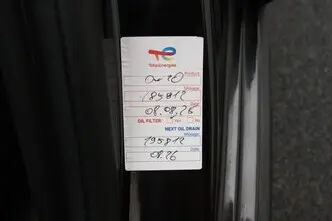 TotalEnergies
0w20
Product
Mileage
185812
Date
08.08.25
OIL FILTER: Yes No
NEXT OIL DRAIN
Mileage
195812
Date
08.26